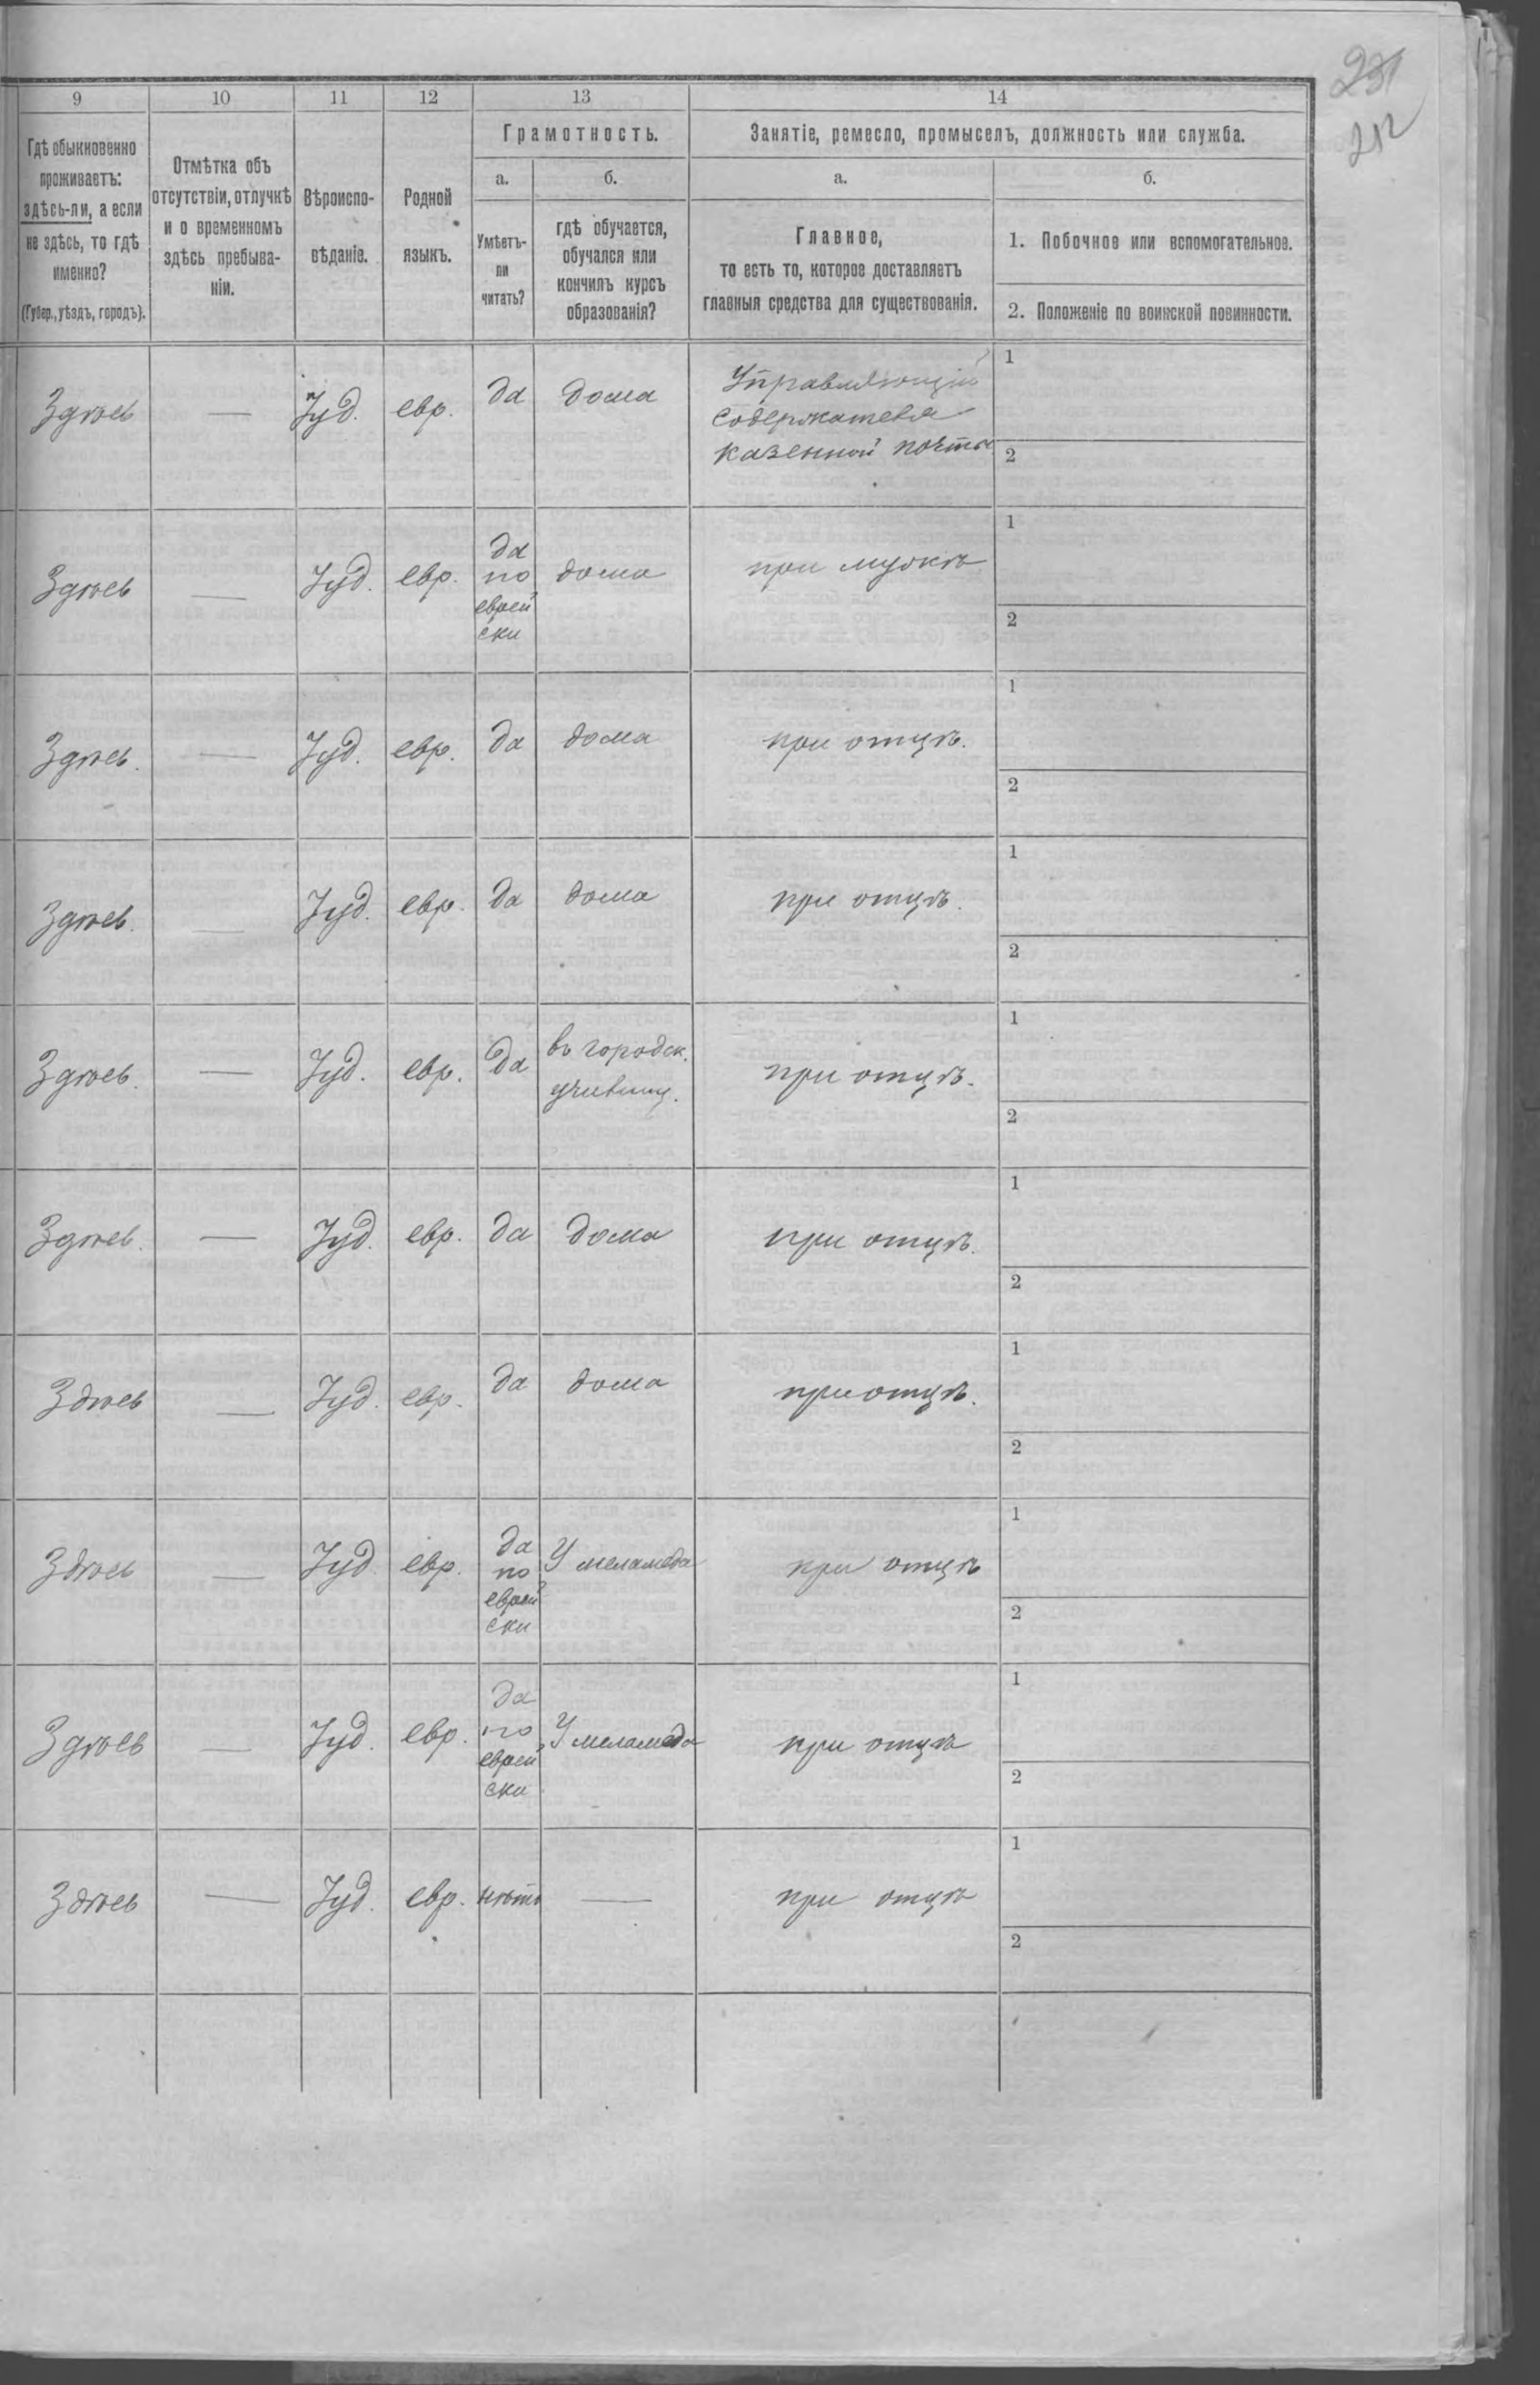 231
212
9 10 11 12 13 14
Гдѣ обыкновенно
проживаетъ:
здѣсь-ли, а если
не здѣсь, то гдѣ
именно?
(Губер., уѣздъ, городъ).
Отмѣтка объ
отсутствіи, отлучкѣ
и о временномъ
здѣсь пребыва-
ніи.
Вѣроиспо-
вѣданіе.
Родной
языкъ.
Грамотность.
а.
Умѣетъ-
ли
читать?
б.
гдѣ обучается,
обучался или
кончилъ курсъ
образованія?
Занятіе, ремесло, промыселъ, должность или служба.
а.
Главное,
то есть то, которое доставляетъ
главныя средства для существованія.
б.
1. Побочное или вспомогательное.
2. Положеніе по воинской повинности.
Здѣсь — Іуд. евр. да дома
Управляющій
содержателя
казенной почты
1
2
Здѣсь — Іуд. евр.
да
по
еврей
ски
дома
при мужѣ
1
2
Здѣсь. — Іуд. евр. да дома при отцѣ.
1
2
Здѣсь. — Іуд. евр. да дома при отцѣ.
1
2
Здѣсь. — Іуд. евр. да
въ городск.
училищ.
при отцѣ.
1
2
Здѣсь. — Іуд. евр. да дома при отцѣ.
1
2
Здѣсь — Іуд. евр. да дома при отцѣ.
1
2
Здѣсь — Іуд. евр.
да
по
еврей
ски
У меламеда
при отцѣ
1
2
Здѣсь — Іуд. евр.
да
по
еврей
ски
У меламеда
при отцѣ
1
2
Здѣсь — Іуд. евр. нѣтъ — при отцѣ
1
2